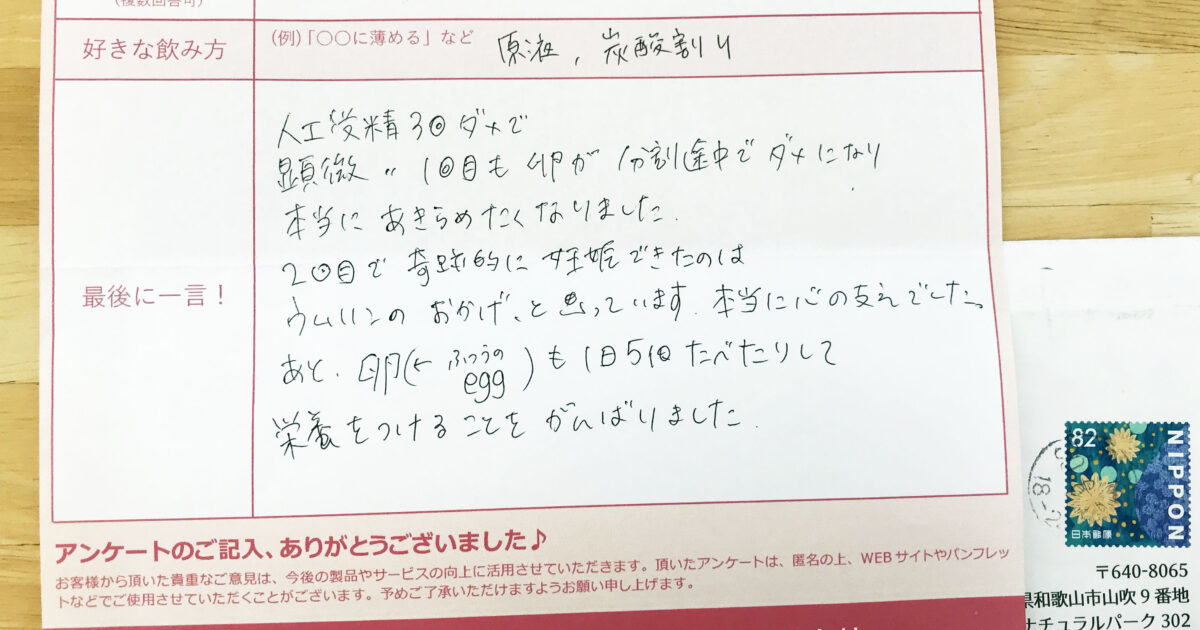 (複数回答可)
好きな飲み方
(例)「〇〇に薄める」など
原液、炭酸割り
最後に一言！
人工受精3回ダメで
顕微〃1回目も卵が分割途中でダメになり
本当にあきらめたくなりました.
2回目で奇跡的に妊娠できたのは
ウムリンのおかげ、と思っています. 本当に心の支えでした。
あと、卵(←ふつうのegg)も1日5個たべたりして
栄養をつけることをがんばりました.
アンケートのご記入、ありがとうございました♪
お客様から頂いた貴重なご意見は、今後の製品やサービスの向上に活用させていただきます。頂いたアンケートは、匿名の上、WEBサイトやパンフレッ
トなどでご使用させていただくことがございます。予めご了承いただけますようお願い申し上げます。
82
NIPPON
日本郵便
18
〒640-8065
県和歌山市山吹9番地
ナチュラルパーク302